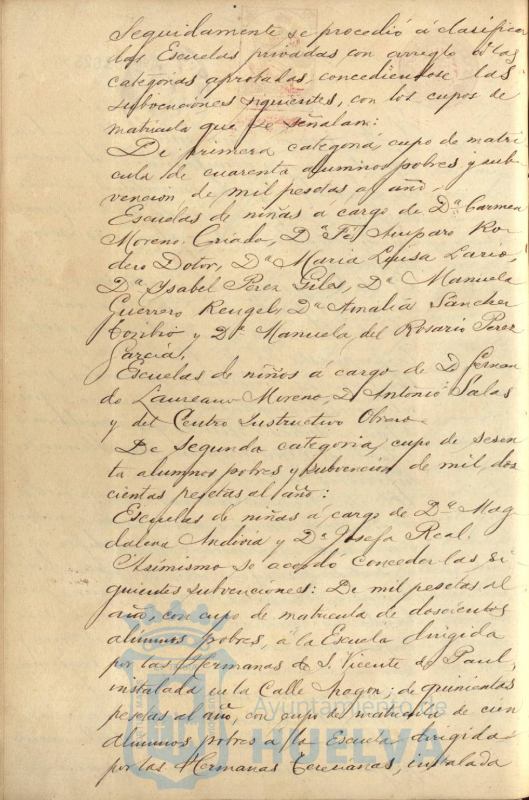 Seguidamente se procedió á clasificar
las Escuelas privadas con arreglo á las
categorias aprobadas concediendose las
subvenciones siguientes, con los cupos de
matricula que se señalan:
De primera categoria, cupo de matri
cula de cuarenta alumnos pobres y sub-
vencion de mil pesetas al año,
Escuelas de niñas á cargo de Dª Carmen
Moreno Criado, Dª Fé Amparo Ro
dero Dotor, Dª Maria Luisa Lario,
Dª Ysabel Perez Giles, Dª Manuela
Guerrero Rengel, Dª Amalia Sánchez
Toribio y Dª Manuela del Rosario Perez
García,
Escuelas de niños á cargo de D. Fernan
do Laureano Moreno, D. Antonio Salas
y del Centro Instructivo Obrero.
De segunda categoria, cupo de sesen
ta alumnos pobres y subvencion de mil, dos
cientas pesetas al año:
Escuelas de niñas á cargo de Dª Mag
dalena Andivia y Dª Josefa Real.
Asimismo se acordó conceder las si
guientes subvenciones: De mil pesetas al
año, con cupo de matricula de doscientos
alumnos pobres, á la Escuela dirigida
por las Hermanas de S. Vicente de Paul,
instalada en la Calle Aragon; de quinientas
pesetas al año, con cupo de matricula de cien
alumnos pobres a la Escuela dirigida
por las Hermanas Teresianas, instalada
Ayuntamiento de
HUELVA